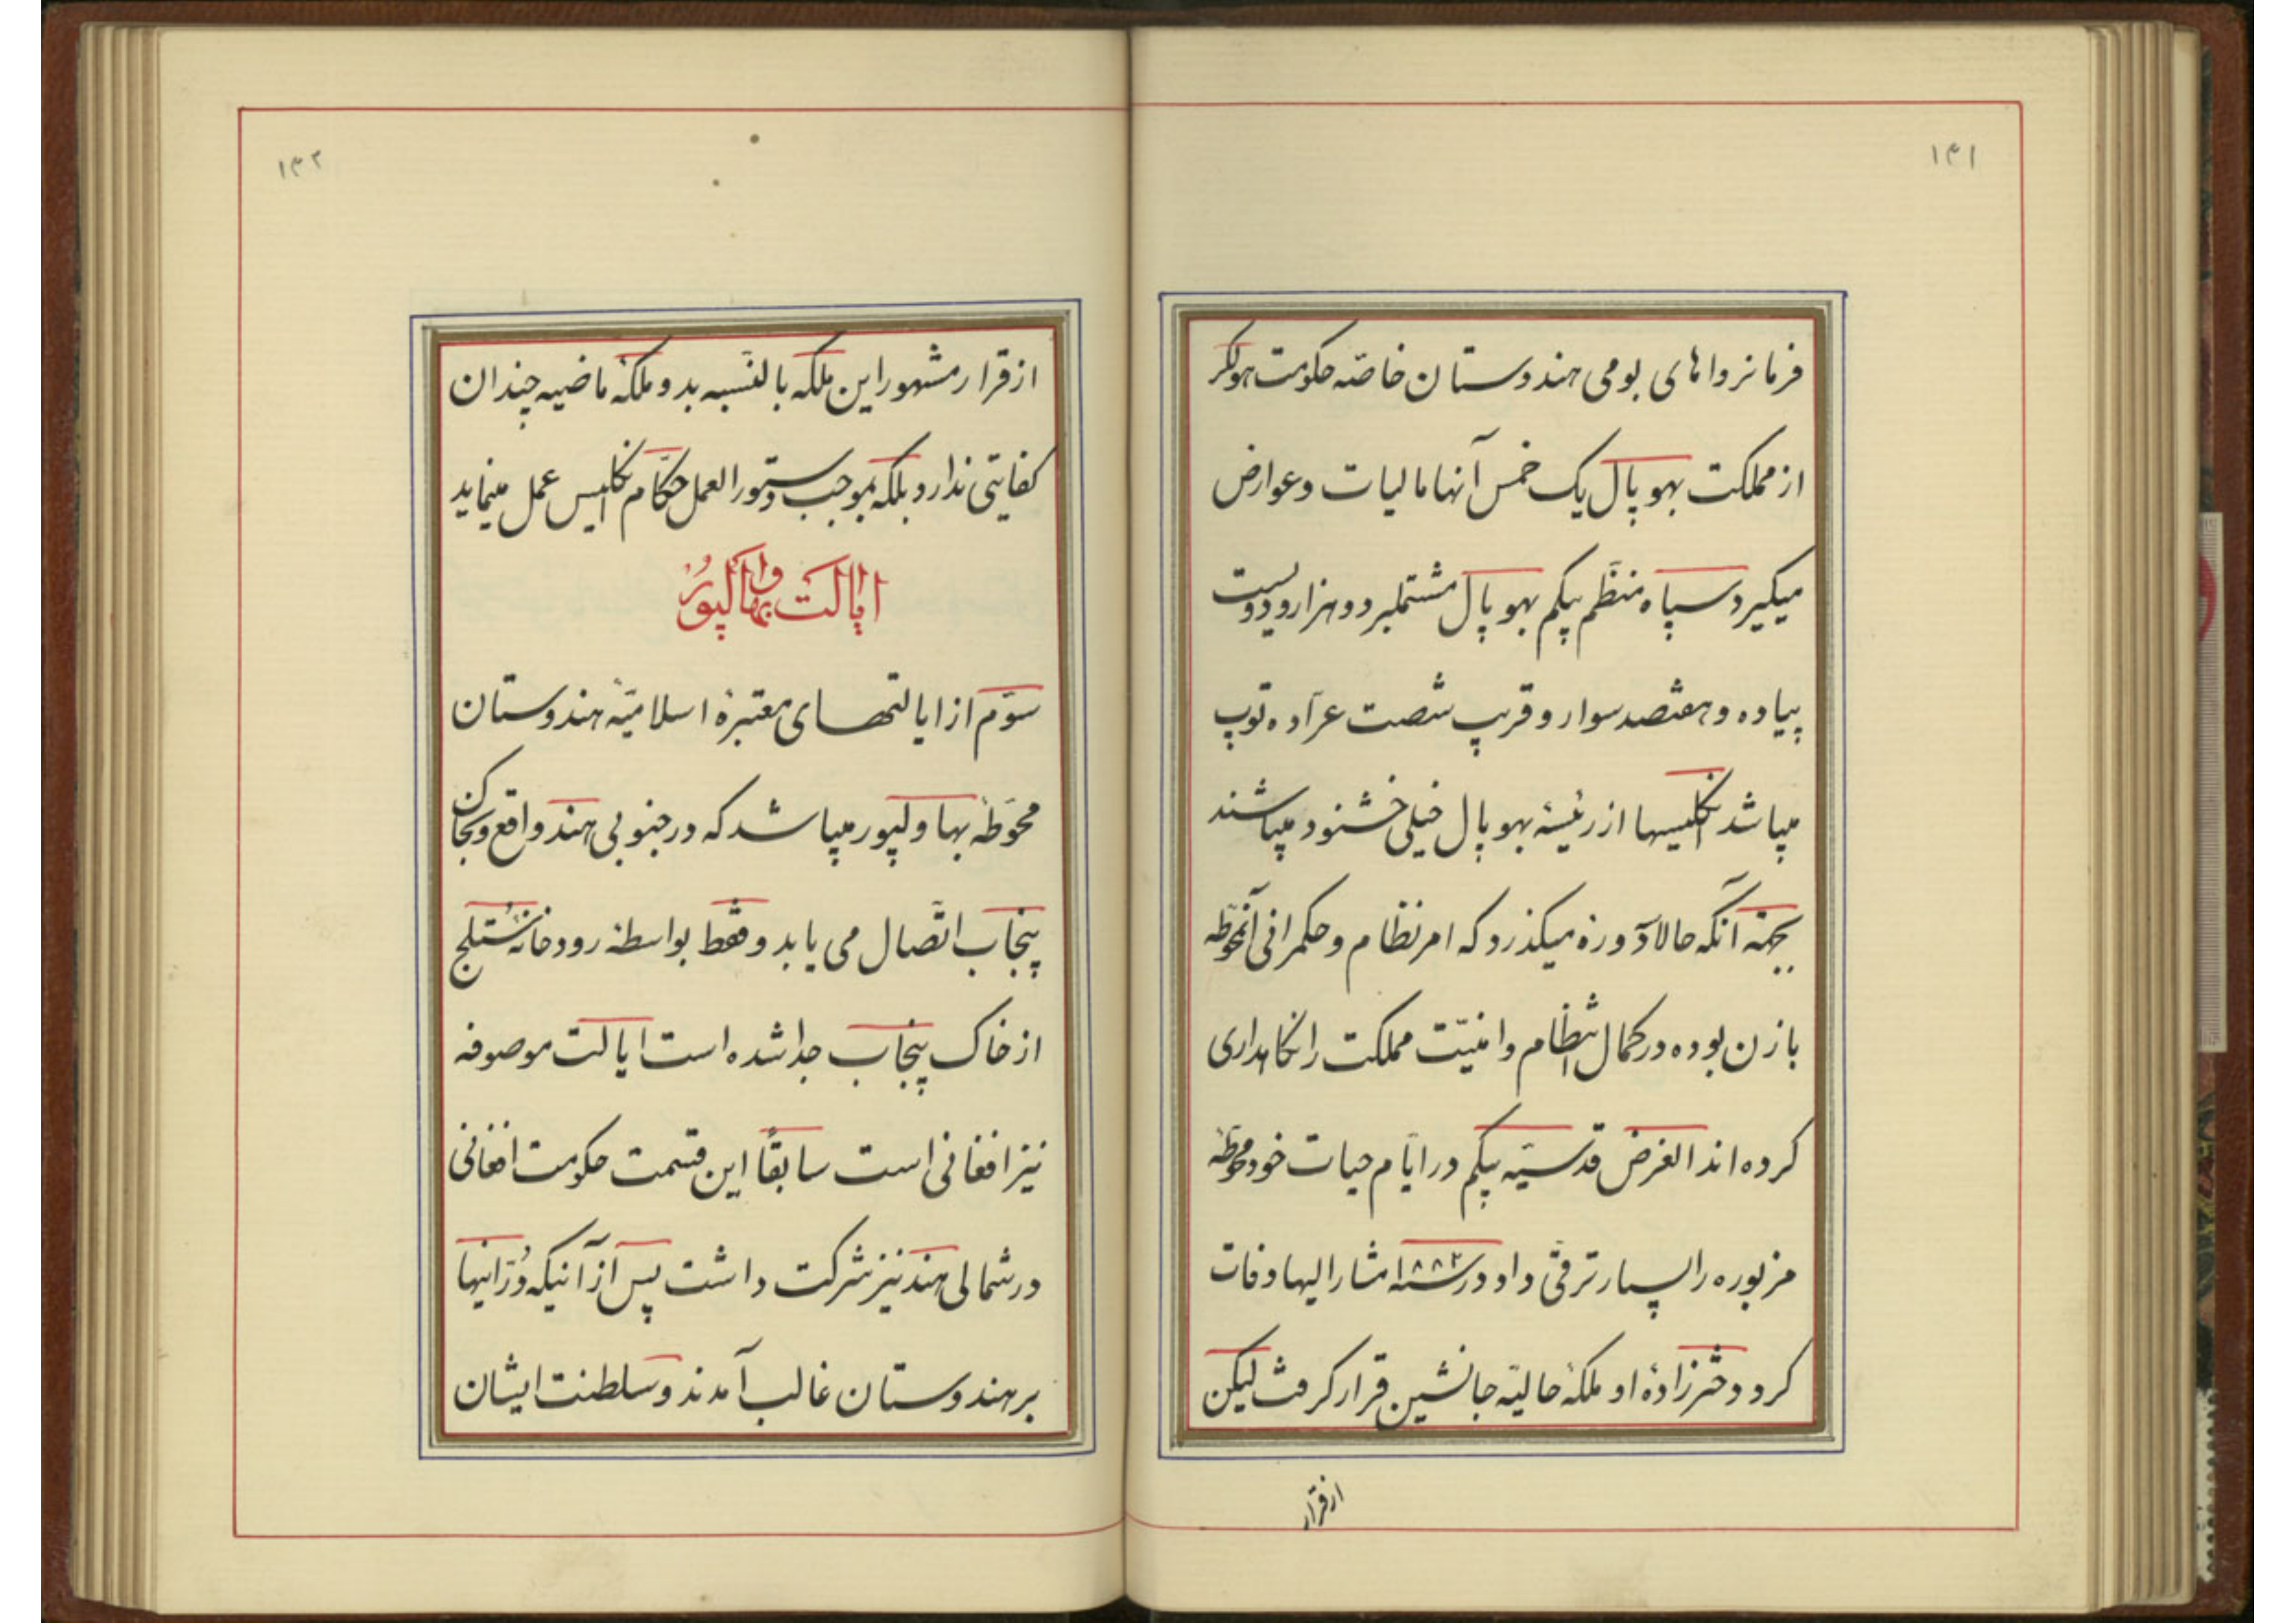 ۱۳۱
فرمانرواهای بومی هندوستان خاصّه حکومت هولکر
از مملکت بهوپال یک خمس آنها مالیات و عوارض
میگیرد سپاه منظّم بیگم بهوپال مشتملبر دو هزار و دویست
پیاده و هفتصد سوار و قریب شصت عرّاده توپ
میباشد انگلیسها از رئیسهٔ بهوپال خیلی خشنود میباشند
بجهته آنکه حالا دو دوره میگذرد که امر نظام و حکمرانی آنمحوّطه
با زن بوده در کمال انتظام و امنیّت مملکت را نگاهداری
کرده اند الغرض قدسیّه بیگم در ایّام حیات خود محوّطهٔ
مزبوره را بسیار ترقّی داد و در سنه ۱۸۸۲ مشار الیها وفات
کرد و دخترزادهٔ او ملکهٔ حالیّه جانشین قرار گرفت لیکن
از قرار
۱۳۲
از قرار مشهور این ملکه بالنّسبه بدو ملکهٔ ماضیه چندان
کفایتی ندارد بلکه بموجب دستور العمل حکّام انگلیس عمل مینماید
ایالت بهاوالپور
سوّم از ایالتهای معتبرهٔ اسلامیّهٔ هندوستان
محوّطهٔ بهاولپور میباشد که در جنوبی هند واقع و بخاک
پنجاب اتّصال می یابد و فقط بواسطهٔ رودخانهٔ ستلج
از خاک پنجاب جدا شده است ایالت موصوفه
نیز افغانی است سابقاً این قسمت حکومت افغانی
در شمالی هند نیز شرکت داشت پس از آنیکه دُرّانیها
بر هندوستان غالب آمدند و سلطنت ایشان